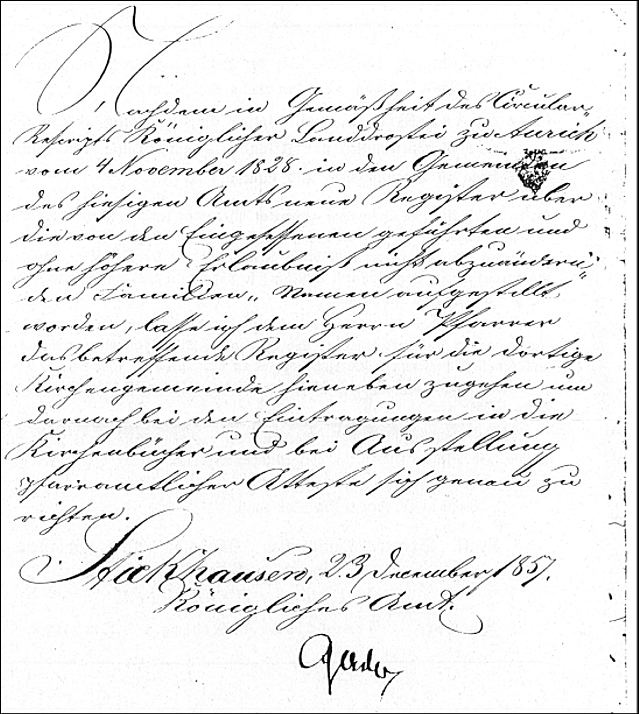 Nachdem in Gemäßheit des Circular-
Rescripts Königlicher Landdrostei zu Aurich
vom 4 November 1828. in den Gemeinden
des hiesigen Amts neue Register über
die von den Eingesessenen geführten und
ohne höhere Erlaubniß nicht abzuändern-
den Familien-Namen aufgestellt
worden, lasse ich dem Herrn Pfarrer
das betreffende Register für die dortige
Kirchengemeinde hieneben zugehen um
darnach bei den Eintragungen in die
Kirchenbücher und bei Ausstellung
pfarramtlicher Atteste sich genau zu
richten.
Stickhausen, 23 December 1857.
Königliches Amt.